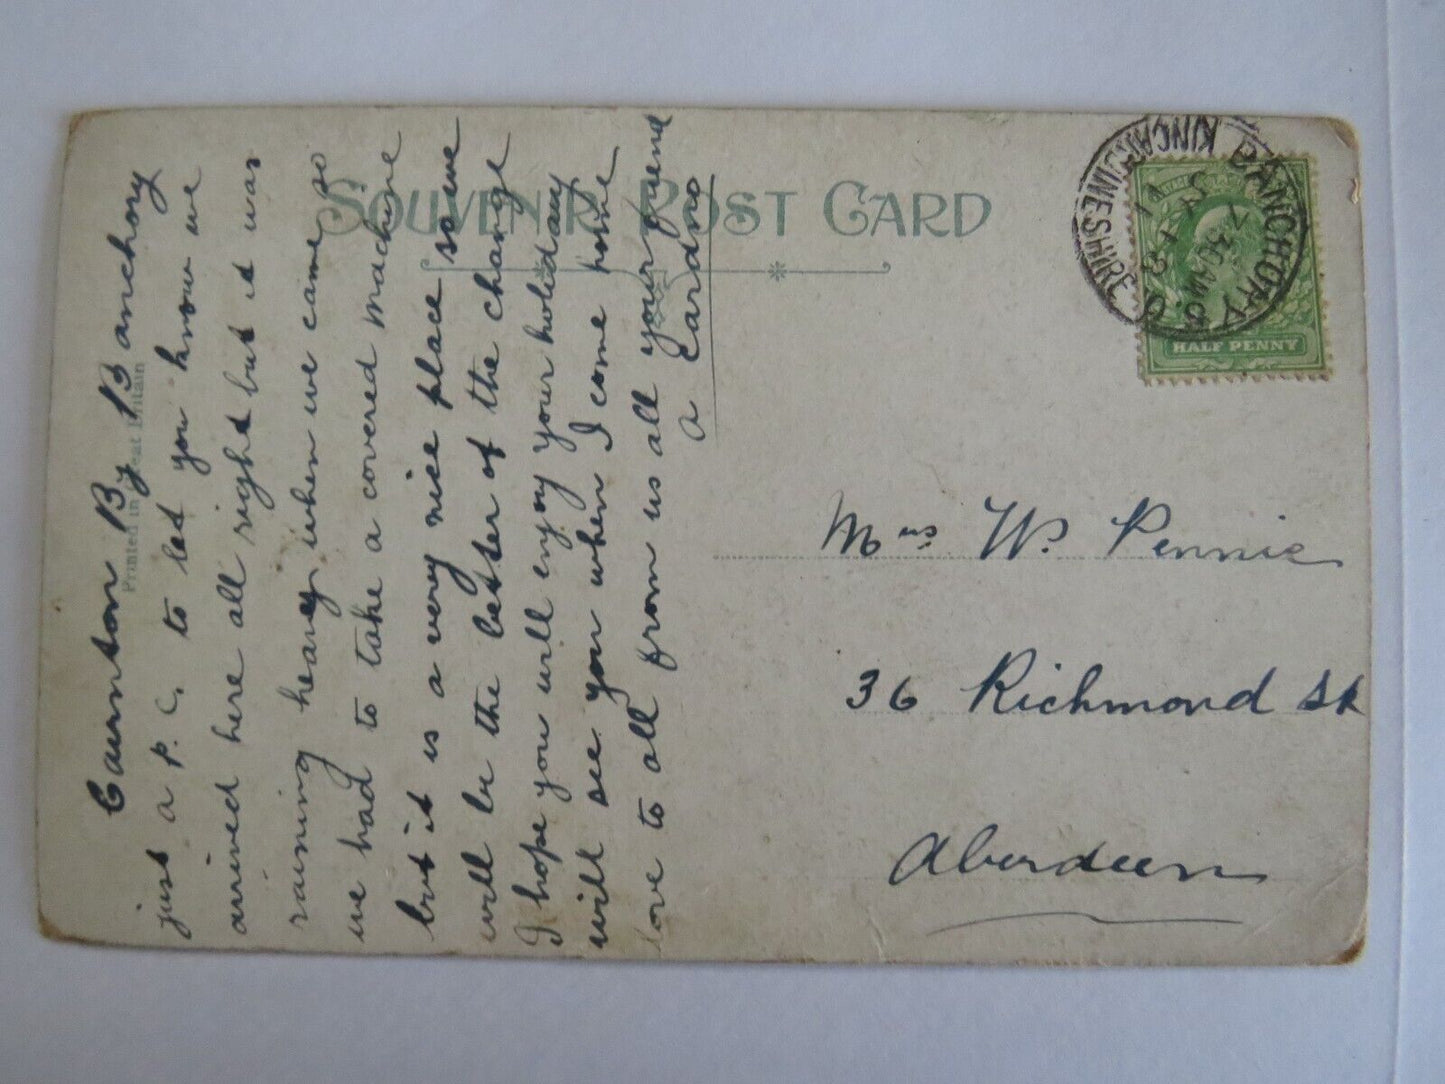 SOUVENIR POST CARD
Printed in Great Britain
Cairnton By Banchory
just a P.C. to let you know we
arrived here all right but it was
raining heavy when we came so
we had to take a covered machine
but it is a very nice place so we
will be the better of the change
I hope you will enjoy your holiday
will see you when I come home
love to all from us all your friend
a Cardno
BANCHORY S.O.
KINCARDINESHIRE
HALF PENNY
Mrs W. Pennie
36 Richmond St
Aberdeen